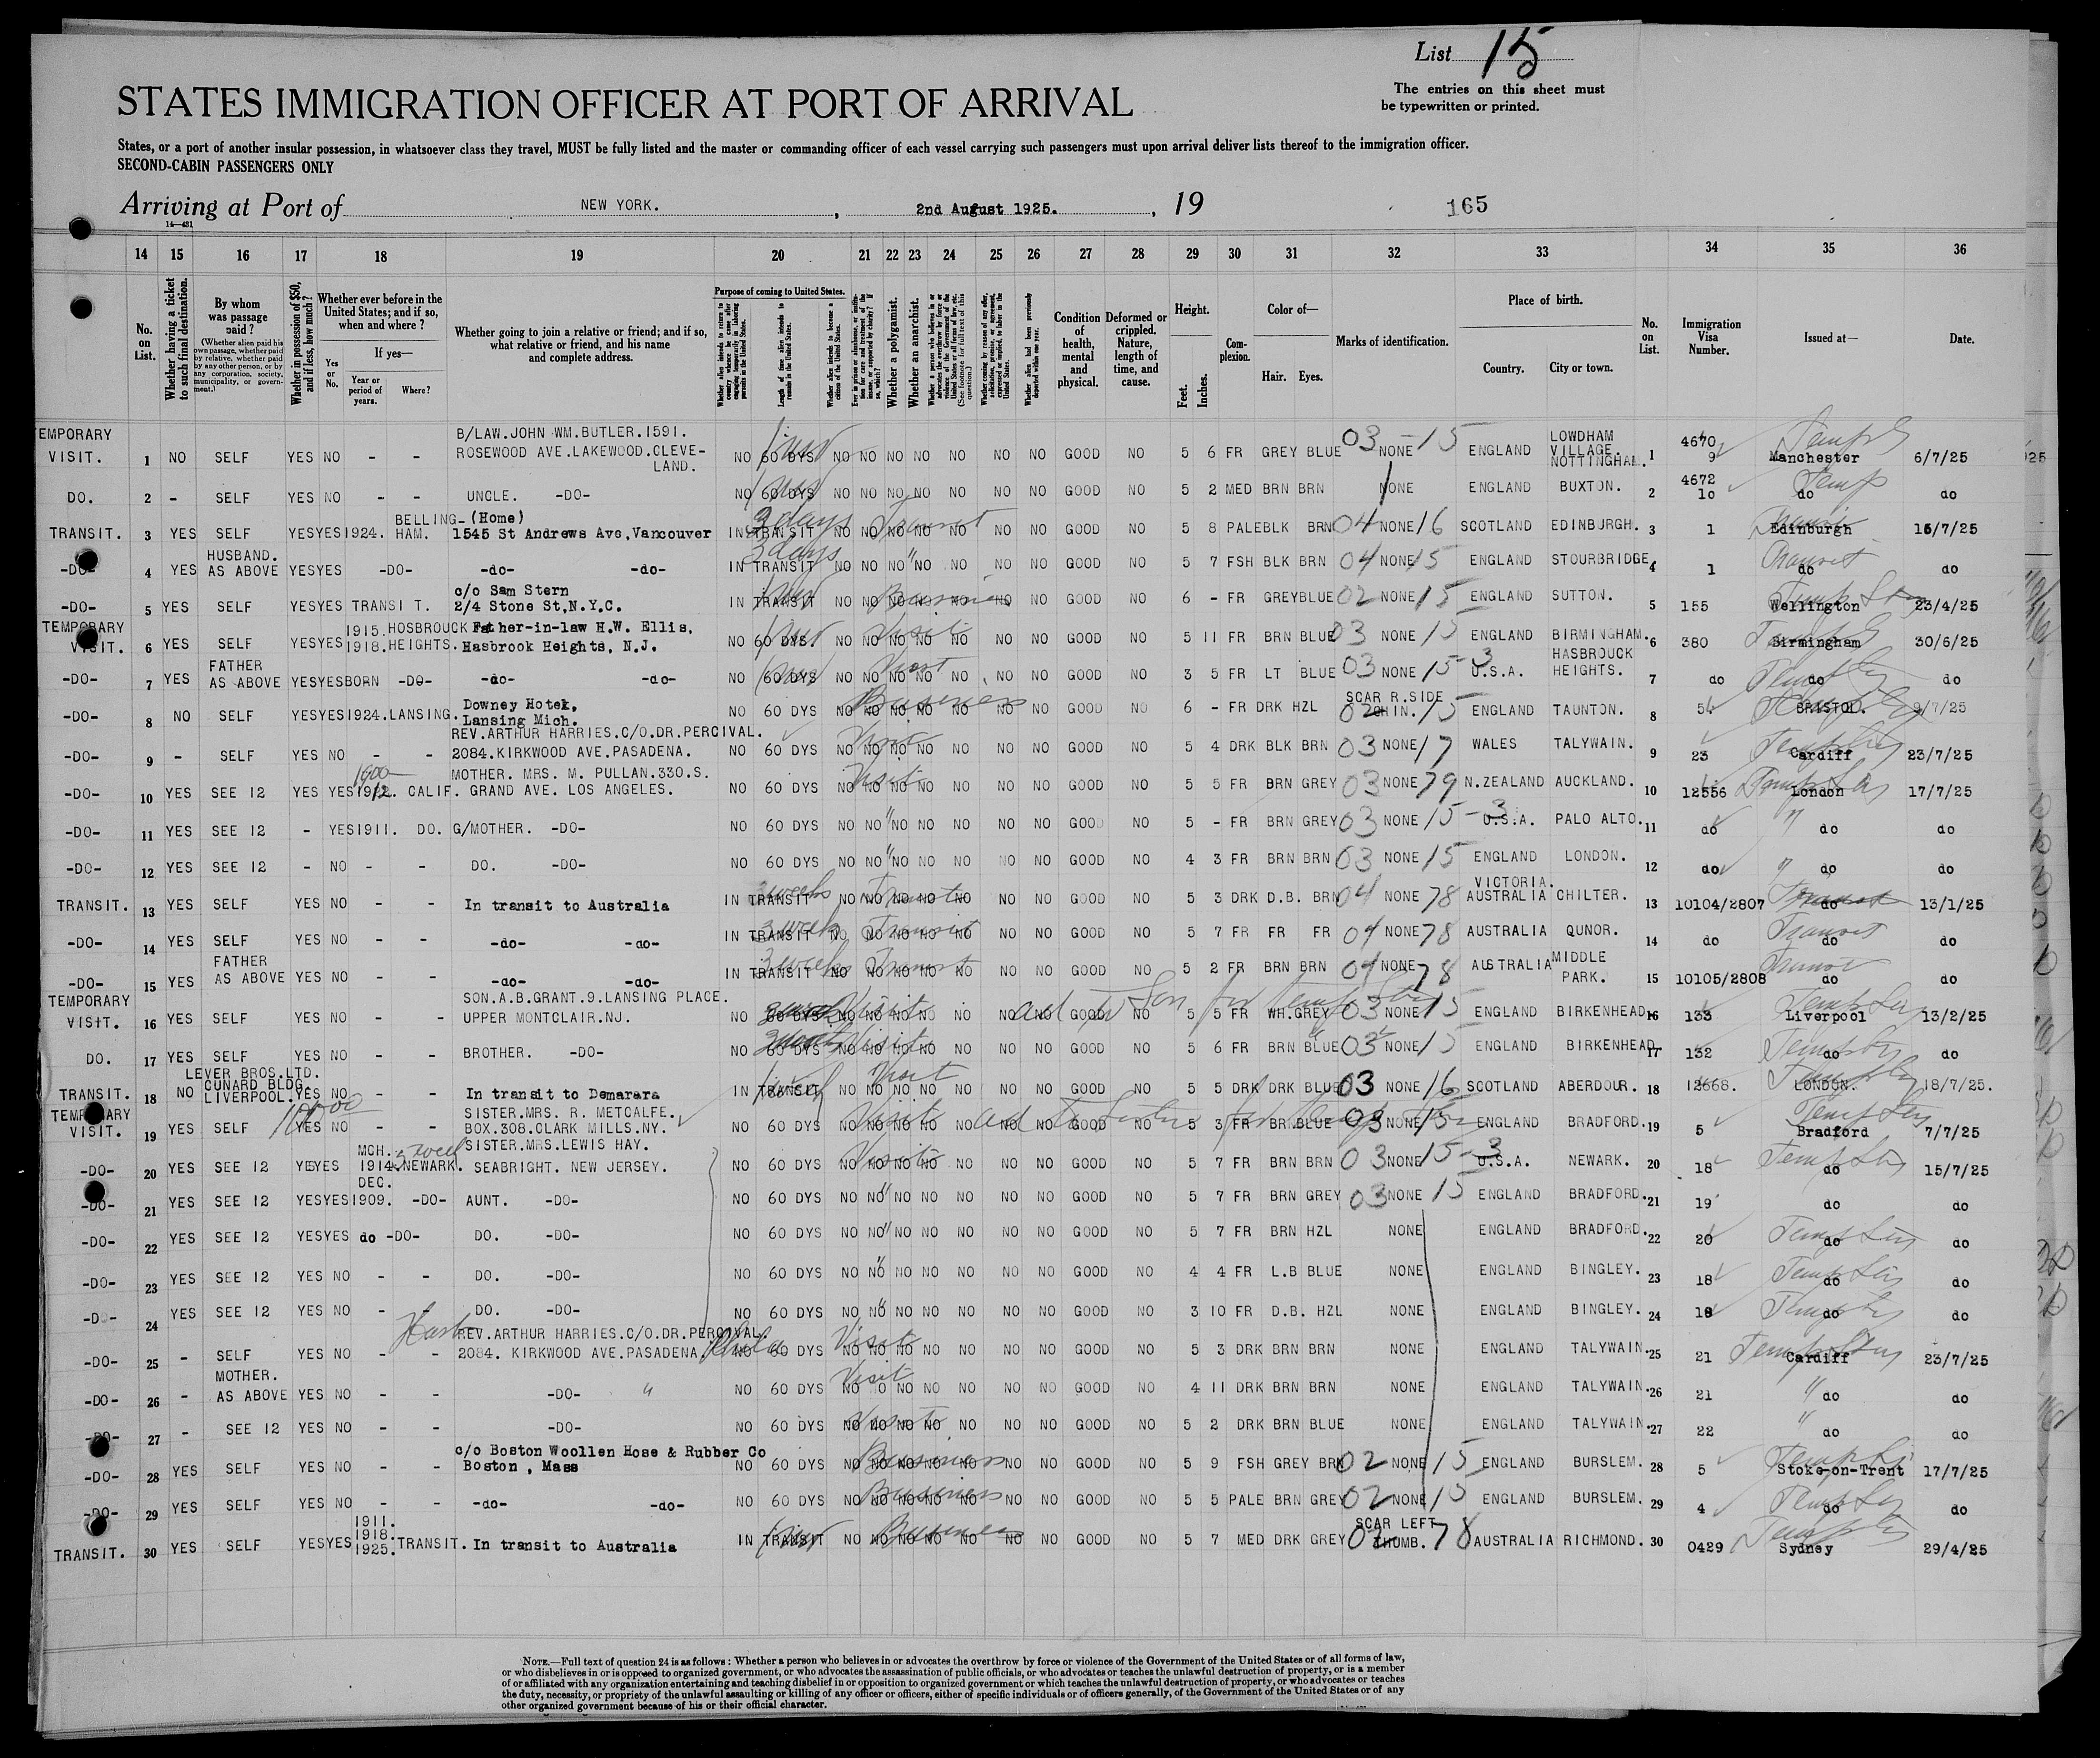 List 15
The entries on this sheet must
be typewritten or printed.
STATES IMMIGRATION OFFICER AT PORT OF ARRIVAL
States, or a port of another insular possession, in whatsoever class they travel, MUST be fully listed and the master or commanding officer of each vessel carrying such passengers must upon arrival deliver lists thereof to the immigration officer.
SECOND-CABIN PASSENGERS ONLY
Arriving at Port of NEW YORK. , 2nd August 1925. , 19 165
14—431
14 15 16 17 18 19 20 21 22 23 24 25 26 27 28 29 30 31 32 33 34 35 36
No. on List.
Whether having a ticket to such final destination.
By whom was passage paid?
(Whether alien paid his own passage, whether paid by relative, whether paid by any other person, or by any corporation, society, municipality, or government.)
Whether in possession of $50, and if less, how much?
Whether ever before in the United States; and if so, when and where?
Yes or No.
If yes—
Year or period of years.
Where?
Whether going to join a relative or friend; and if so, what relative or friend, and his name and complete address.
Purpose of coming to United States.
Length of time alien intends to remain in the United States.
Whether alien intends to become a citizen of the United States.
Whether a polygamist.
Whether an anarchist.
Condition of health, mental and physical.
Deformed or crippled. Nature, length of time, and cause.
Height.
Feet.
Inches.
Complexion.
Color of—
Hair. Eyes.
Marks of identification.
Place of birth.
Country. City or town.
No. on List.
Immigration Visa Number.
Issued at—
Date.
TEMPORARY VISIT. 1 NO SELF YES NO - - B/LAW.JOHN WM.BUTLER.1591. ROSEWOOD AVE.LAKEWOOD.CLEVE-LAND. NO 60 DYS NO NO NO NO NO NO NO GOOD NO 5 6 FR GREY BLUE 03 NONE-15 ENGLAND LOWDHAM VILLAGE. NOTTINGHAM. 1 4670 9 Manchester 6/7/25
DO. 2 - SELF YES NO - - UNCLE. -DO- NO 60 DYS NO NO NO NO NO NO NO GOOD NO 5 2 MED BRN BRN NONE ENGLAND BUXTON. 2 4672 10 do Temp do
TRANSIT. 3 YES SELF YES YES 1924. BELLING-HAM. (Home) 1545 St Andrews Ave, Vancouver IN TRANSIT 3 days Transit NO NO NO NO NO NO NO GOOD NO 5 8 PALE BLK BRN 04 NONE 16 SCOTLAND EDINBURGH. 3 1 Edinburgh 16/7/25
-DO- 4 YES HUSBAND. AS ABOVE YES YES -DO- -do- -do- IN TRANSIT 3 days NO NO NO " NO NO NO NO GOOD NO 5 7 FSH BLK BRN 04 NONE 15 ENGLAND STOURBRIDGE 4 1 do Transit do
-DO- 5 YES SELF YES YES TRANSIT. c/o Sam Stern 2/4 Stone St,N.Y.C. IN TRANSIT NO NO NO NO NO NO NO Business GOOD NO 6 - FR GREY BLUE 02 NONE 15 ENGLAND SUTTON. 5 155 Wellington 23/4/25
TEMPORARY VISIT. 6 YES SELF YES YES 1915. 1918. HOSBROUCK HEIGHTS. Father-in-law H.W. Ellis, Hasbrook Heights, N.J. NO 60 DYS. NO NO NO NO NO NO NO Visit GOOD NO 5 11 FR BRN BLUE 03 NONE 15 ENGLAND BIRMINGHAM. 6 380 Birmingham 30/6/25
-DO- 7 YES FATHER AS ABOVE YES YES BORN -DO- -do- -do- NO 60 DYS NO NO NO NO NO NO NO Visit GOOD NO 3 5 FR LT BLUE 03 NONE 15-3 U.S.A. HASBROUCK HEIGHTS. 7 do do do
-DO- 8 NO SELF YES YES 1924. LANSING. Downey Hotek, Lansing Mich. NO 60 DYS NO NO NO NO NO NO NO Business GOOD NO 6 - FR DRK HZL SCAR R.SIDE CHIN. 02 15 ENGLAND TAUNTON. 8 5. BRISTOL. 9/7/25
-DO- 9 - SELF YES NO - - REV.ARTHUR HARRIES.C/O.DR.PERCIVAL. 2084.KIRKWOOD AVE.PASADENA. NO 60 DYS NO NO NO NO NO NO NO Visit GOOD NO 5 4 DRK BLK BRN 03 NONE 17 WALES TALYWAIN. 9 23 Cardiff 23/7/25
-DO- 10 YES SEE 12 YES YES 1900- 1912. CALIF. MOTHER. MRS. M. PULLAN.330.S. GRAND AVE. LOS ANGELES. NO 60 DYS NO NO NO NO NO NO NO Visit GOOD NO 5 5 FR BRN GREY 03 NONE 79 N.ZEALAND AUCKLAND. 10 12556 London 17/7/25
-DO- 11 YES SEE 12 - YES 1911. DO. G/MOTHER. -DO- NO 60 DYS NO NO " NO NO NO NO NO GOOD NO 5 - FR BRN GREY 03 NONE 15-3 U.S.A. PALO ALTO. 11 do " do do
-DO- 12 YES SEE 12 - NO - - DO. -DO- NO 60 DYS NO NO " NO NO NO NO NO GOOD NO 4 3 FR BRN BRN 03 NONE 15 ENGLAND LONDON. 12 do " do do
TRANSIT. 13 YES SELF YES NO - - In transit to Australia IN TRANSIT 3 weeks NO NO NO NO NO NO NO Transit GOOD NO 5 3 DRK D.B. BRN 04 NONE 78 VICTORIA. AUSTRALIA CHILTER. 13 10104/2807 do 13/1/25
-DO- 14 YES SELF YES NO - - -do- -do- IN TRANSIT 3 week NO NO NO NO NO NO NO Transit GOOD NO 5 7 FR FR FR 04 NONE 78 AUSTRALIA QUNOR. 14 do Transit do do
-DO- 15 YES FATHER AS ABOVE YES NO - - -do- -do- IN TRANSIT 3 weeks NO NO NO NO NO NO NO Transit GOOD NO 5 2 FR BRN BRN 04 NONE 78 AUSTRALIA MIDDLE PARK. 15 10105/2808 do do
TEMPORARY VISIT. 16 YES SELF YES NO - - SON.A.B.GRANT.9.LANSING PLACE. UPPER MONTCLAIR.NJ. NO 60 DYS NO NO NO NO NO NO NO Visit GOOD NO 5 5 FR WH.GREY 03 NONE 15 ENGLAND BIRKENHEAD. 16 133 Liverpool 13/2/25
DO. 17 YES SELF YES NO - - BROTHER. -DO- NO 60 DYS NO NO NO NO NO NO NO Visit GOOD NO 5 6 FR BRN BLUE 03 NONE 15 ENGLAND BIRKENHEAD 17 132 do do
TRANSIT. 18 NO LEVER BROS.LTD. CUNARD BLDG. LIVERPOOL. YES NO - - In transit to Demarara IN TRANSIT NO NO NO NO NO NO NO Visit GOOD NO 5 5 DRK DRK BLUE 03 NONE 16 SCOTLAND ABERDOUR. 18 12668. LONDON. 18/7/25.
TEMPORARY VISIT. 19 YES SELF YES NO - - SISTER.MRS. R. METCALFE. BOX.308.CLARK MILLS.NY. NO 60 DYS NO NO NO NO NO NO NO Visit GOOD NO 5 3 FR BRN BLUE 03 NONE 15 ENGLAND BRADFORD. 19 5 Bradford 7/7/25
-DO- 20 YES SEE 12 YES YES MCH. 1914. NEWARK. SISTER.MRS.LEWIS HAY. SEABRIGHT. NEW JERSEY. NO 60 DYS NO NO NO NO NO NO NO Visit GOOD NO 5 7 FR BRN BRN 03 NONE 15-3 U.S.A. NEWARK. 20 18 do 15/7/25
-DO- 21 YES SEE 12 YES YES DEC. 1909. -DO- AUNT. -DO- NO 60 DYS NO NO " NO NO NO NO NO GOOD NO 5 7 FR BRN GREY 03 NONE 15 ENGLAND BRADFORD. 21 19 do do
-DO- 22 YES SEE 12 YES YES do -DO- DO. -DO- NO 60 DYS NO NO " NO NO NO NO NO GOOD NO 5 7 FR BRN HZL NONE ENGLAND BRADFORD. 22 20 do do
-DO- 23 YES SEE 12 YES NO - - DO. -DO- NO 60 DYS NO NO " NO NO NO NO NO GOOD NO 4 4 FR L.B BLUE NONE ENGLAND BINGLEY. 23 18 do do
-DO- 24 YES SEE 12 YES NO - - DO. -DO- NO 60 DYS NO NO " NO NO NO NO NO GOOD NO 3 10 FR D.B. HZL NONE ENGLAND BINGLEY. 24 18 do do
-DO- 25 - SELF YES NO - - REV.ARTHUR HARRIES.C/O.DR.PERCIVAL. 2084. KIRKWOOD AVE.PASADENA. NO 60 DYS NO NO NO NO NO NO NO Visit GOOD NO 5 3 DRK BRN BRN NONE ENGLAND TALYWAIN. 25 21 Cardiff 23/7/25
-DO- 26 - MOTHER. AS ABOVE YES NO - - -DO- " NO 60 DYS NO NO NO NO NO NO NO Visit GOOD NO 4 11 DRK BRN BRN NONE ENGLAND TALYWAIN. 26 21 " do do
-DO- 27 - SEE 12 YES NO - - -DO- NO 60 DYS NO NO NO NO NO NO NO Visit GOOD NO 5 2 DRK BRN BLUE NONE ENGLAND TALYWAIN. 27 22 " do do
-DO- 28 YES SELF YES NO - - c/o Boston Woollen Hose & Rubber Co Boston , Mass NO 60 DYS NO NO NO NO NO NO NO Business GOOD NO 5 9 FSH GREY BRN 02 NONE 15 ENGLAND BURSLEM. 28 5 Stoke-on-Trent 17/7/25
-DO- 29 YES SELF YES NO - - -do- -do- NO 60 DYS NO NO NO NO NO NO NO Business GOOD NO 5 5 PALE BRN GREY 02 NONE 15 ENGLAND BURSLEM. 29 4 do do
TRANSIT. 30 YES SELF YES YES 1911. 1918. 1925. TRANSIT. In transit to Australia IN TRANSIT NO NO NO NO NO NO NO Business GOOD NO 5 7 MED DRK GREY SCAR LEFT THUMB. 02 78 AUSTRALIA RICHMOND. 30 0429 Sydney 29/4/25
NOTE.—Full text of question 24 is as follows: Whether a person who believes in or advocates the overthrow by force or violence of the Government of the United States or of all forms of law,
or who disbelieves in or is opposed to organized government, or who advocates the assassination of public officials, or who advocates or teaches the unlawful destruction of property, or is a member
of or affiliated with any organization entertaining and teaching disbelief in or opposition to organized government or which teaches the unlawful destruction of property, or who advocates or teaches
the duty, necessity, or propriety of the unlawful assaulting or killing of any officer or officers, either of specific individuals or of officers generally, of the Government of the United States or of any
other organized government because of his or their official character.